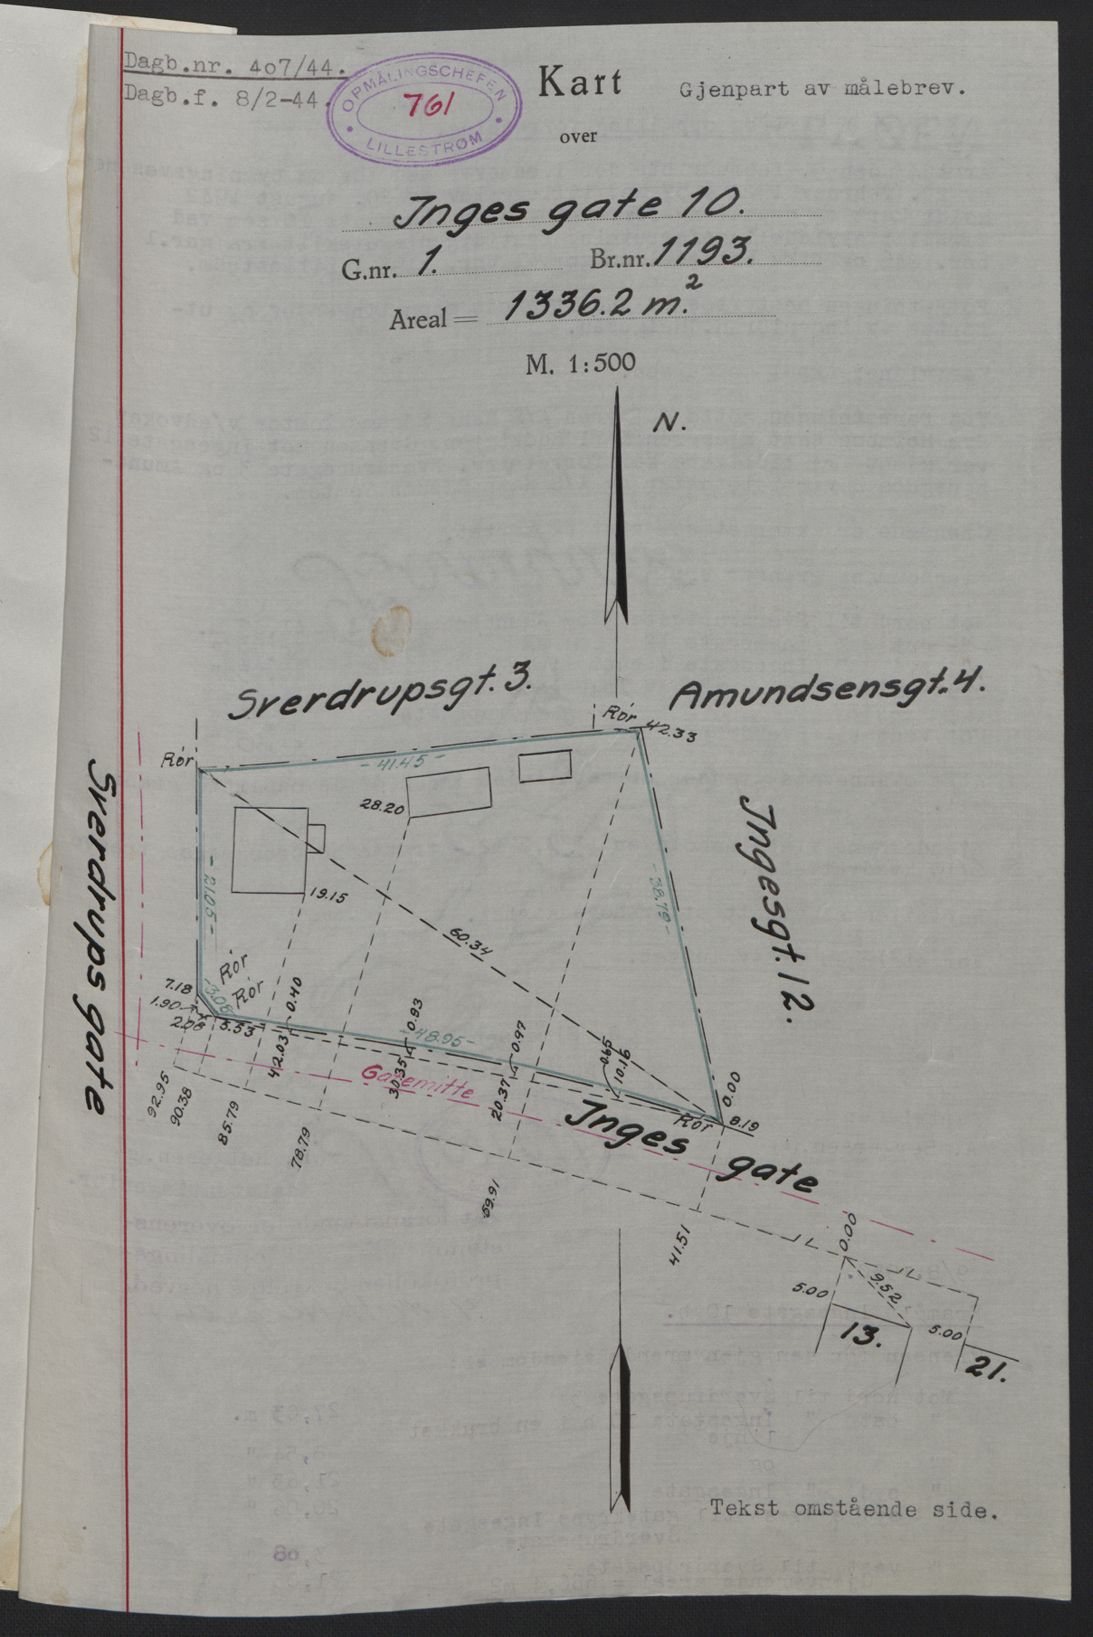 Dagb.nr. 407/44.
Dagb.f. 8/2-44.
OPMÅLINGSCHEFEN
761
LILLESTRØM
Kart
Gjenpart av målebrev.
over
Inges gate 10.
G.nr. 1. Br.nr. 1193.
Areal = 1336.2 m.²
M. 1:500
N.
Sverdrupsgt. 3.
Amundsensgt. 4.
Rör
42.33
Rör
- 41.45 -
28.20
Sverdrups gate
Ingesgt. 12.
- 21.05 -
19.15
- 38.79 -
60.34
Rör
Rör
7.18
3.08
1.90
2.08
5.53
0.40
42.03
0.93
- 48.95 -
30.35
0.97
20.37
0.65
10.16
0.00
8.19
Rör
Gatemitte
Inges gate
92.95
90.38
85.79
78.79
59.91
41.51
0.00
9.52
5.00
13.
5.00
21.
Tekst omstående side.